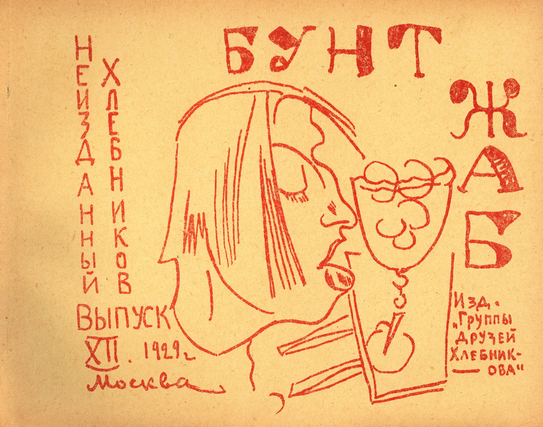 БУНТ
ЖАБ
НЕИЗДАННЫЙ
ХЛЕБНИКОВ
ВЫПУСК
XII. 1929г
Москва
Изд.
„Группы
друзей
Хлебник-
ова“